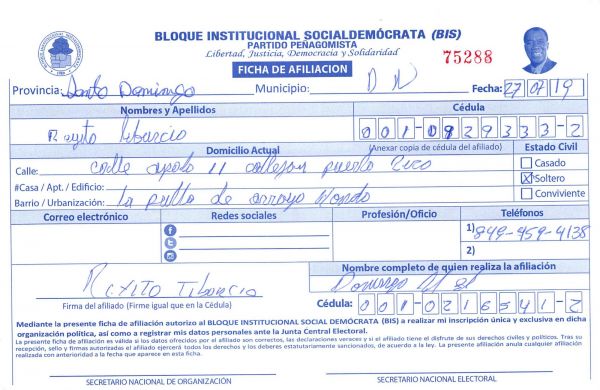 BLOQUE INSTITUCIONAL SOCIALDEMÓCRATA (BIS)
PARTIDO PEÑAGOMISTA
Libertad, Justicia, Democracia y Solidaridad
75288
FICHA DE AFILIACION
Provincia: Santo Domingo Municipio: D N Fecha: 27/07/19
Nombres y Apellidos Cédula
Rexito Tiburcio 001-0929333-2
Domicilio Actual (Anexar copia de cédula del afiliado) Estado Civil
Calle: calle apolo 11 callejon puerto Rico Casado
#Casa / Apt. / Edificio: X Soltero
Barrio / Urbanización: la pulla de arroyo Hondo Conviviente
Correo electrónico Redes sociales Profesión/Oficio Teléfonos
1) 849-959-4138
2)
Nombre completo de quien realiza la afiliación
Rexito Tiburcio Domingo
Firma del afiliado (Firme igual que en la Cédula) Cédula: 001-0216541-2
Mediante la presente ficha de afiliación autorizo al BLOQUE INSTITUCIONAL SOCIAL DEMÓCRATA (BIS) a realizar mi inscripción única y exclusiva en dicha
organización política, así como a registrar mis datos personales ante la Junta Central Electoral.
La presente ficha de afiliación es válida si los datos ofrecidos por el afiliado son correctos, las declaraciones veraces y si el afiliado tiene el disfrute de sus derechos civiles y políticos. Tras su
recepción, sello y firmas autorizadas el afiliado ejercerá todos los derechos y los deberes estatutariamente sancionados, de acuerdo a la ley. La presente afiliación anula cualquier afiliación
realizada con anterioridad a la fecha que aparece en esta ficha.
SECRETARIO NACIONAL DE ORGANIZACIÓN SECRETARIO NACIONAL ELECTORAL